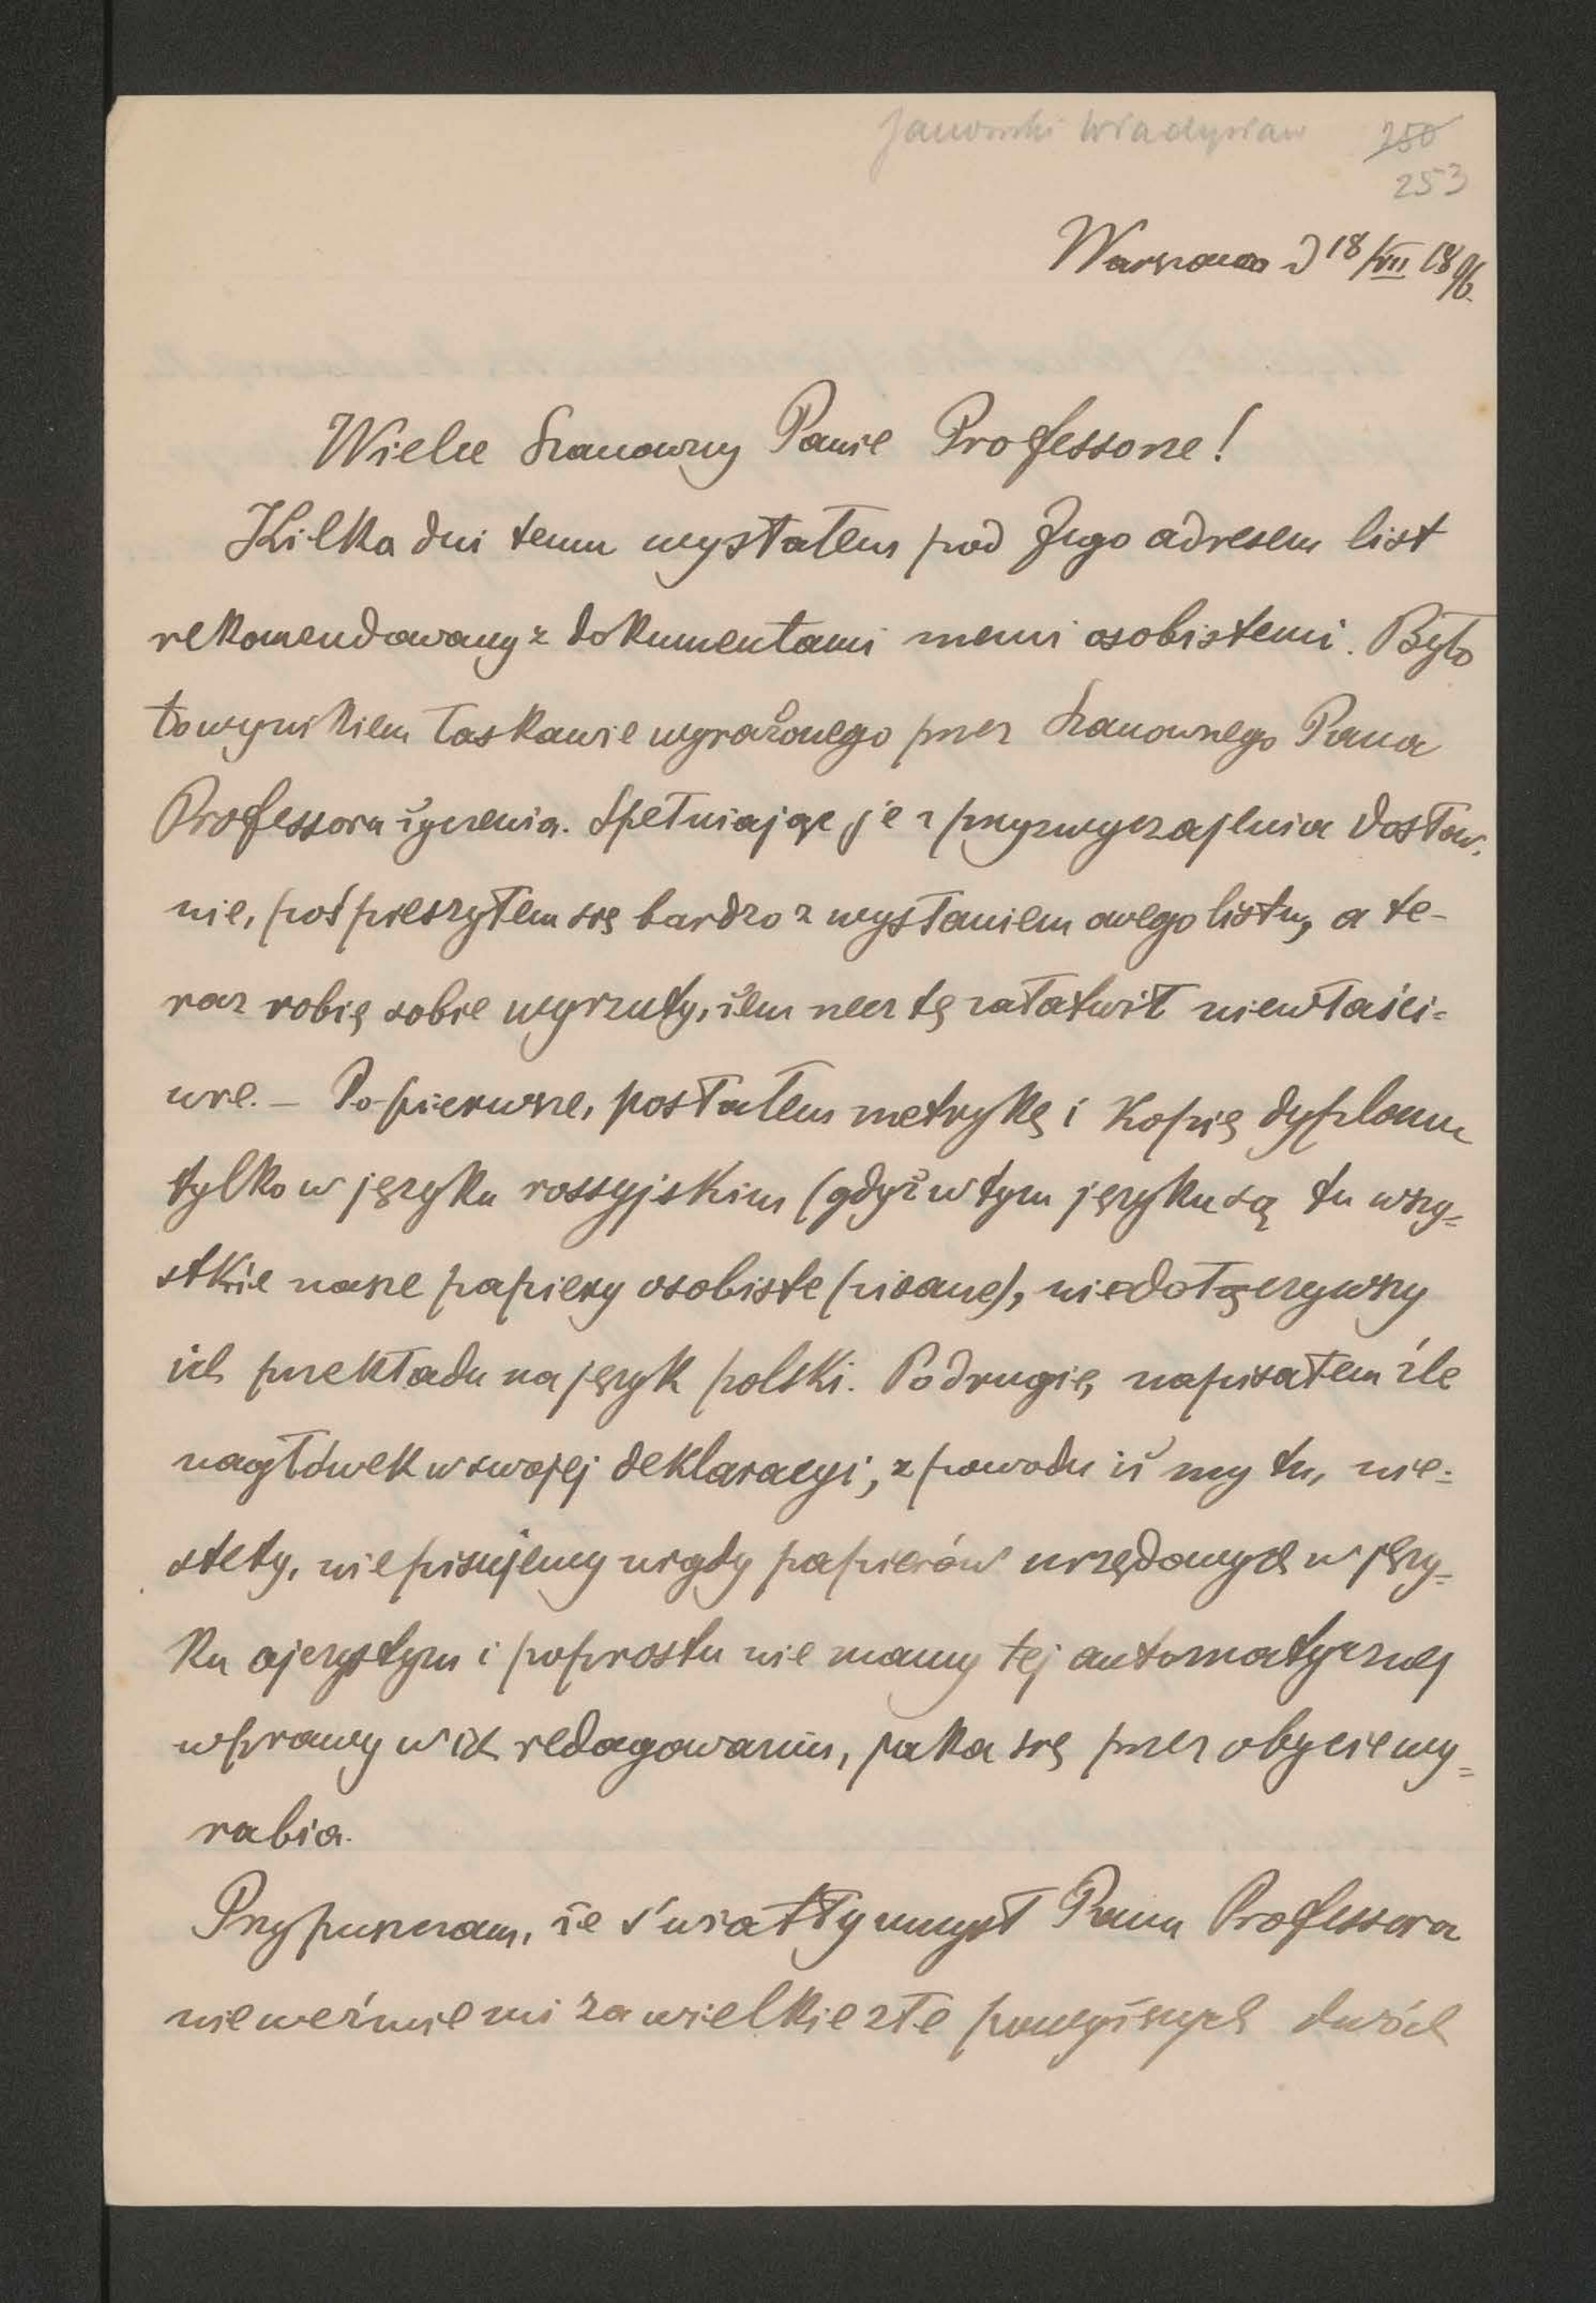 Janowski Władysław 250
253
Warszawa d 18/VII 1896.
Wielce Szanowny Panie Professorze!
Kilka dni temu wysłałem pod Jego adresem list
rekomendowany z dokumentami memi osobistemi. Było
to wynikiem łaskawie wyrażonego przez Szanownego Pana
Professora życzenia. Spełniając je z przyzwyczajenia dosłow-
nie, pośpieszyłem się bardzo z wysłaniem owego listu, a te-
raz robię sobie wyrzuty, iżem rzecz tę załatwił niewłaści-
wie. – Po pierwsze, posłałem metrykę i kopię dyplomu
tylko w języku rossyjskim (gdyż w tym języku są tu wszy-
stkie nasze papiery osobiste pisane), nie dołączywszy
ich przekładu na język polski. Po drugie, napisałem źle
nagłówek w swojej deklaracyi, z powodu iż my tu, nie-
stety, nie pisujemy nigdy papierów urzędowych w języ-
ku ojczystym i poprostu nie mamy tej automatycznej
wprawy w ich redagowaniu, jaka się przez obycie wy-
rabia.
Przypuszczam, że światły umysł Pana Professora
nie weźmie mi za wielkie złe powyższych dwóch